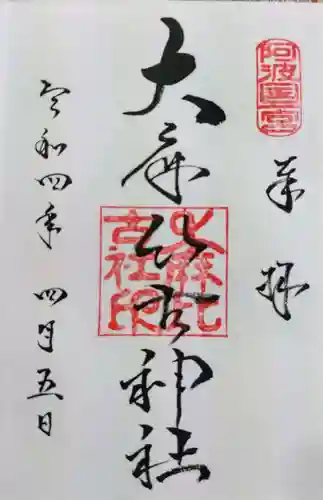 阿波国一宮
奉拝
大麻比古神社
大麻比
古社印
令和四年 四月五日